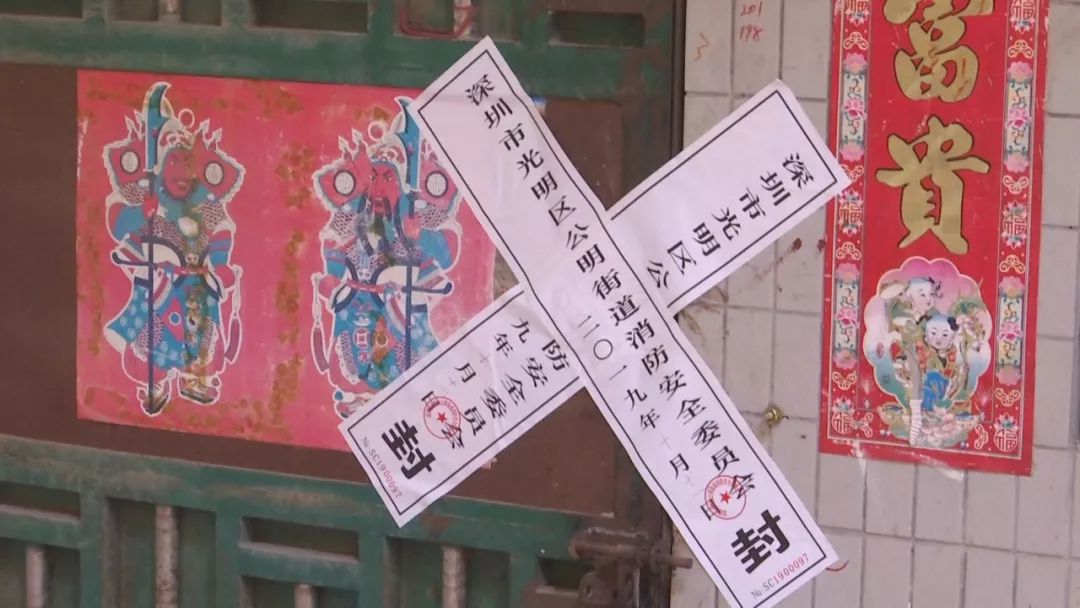 201
198
富
贵
深圳市光明区公明街道消防安全委员会
二〇一九年十月十一日
封
№.SC1900097
深圳市光明区公
防安全委员会
九年十月十日
封
№.SC1900097
福
福
福